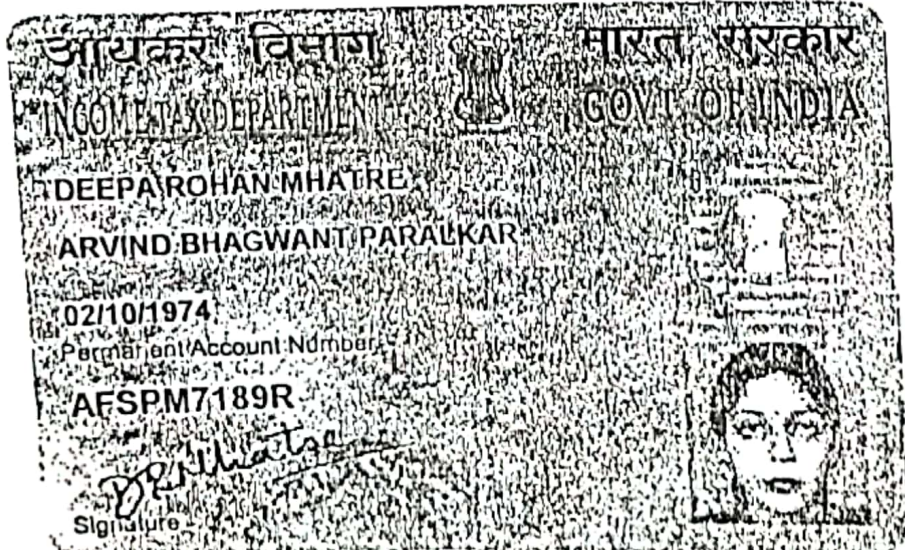 आयकर विभाग भारत सरकार
INCOME TAX DEPARTMENT GOVT. OF INDIA
DEEPA ROHAN MHATRE
ARVIND BHAGWANT PARALKAR
02/10/1974
Permanent Account Number
AFSPM7189R
D R Mhatre
Signature